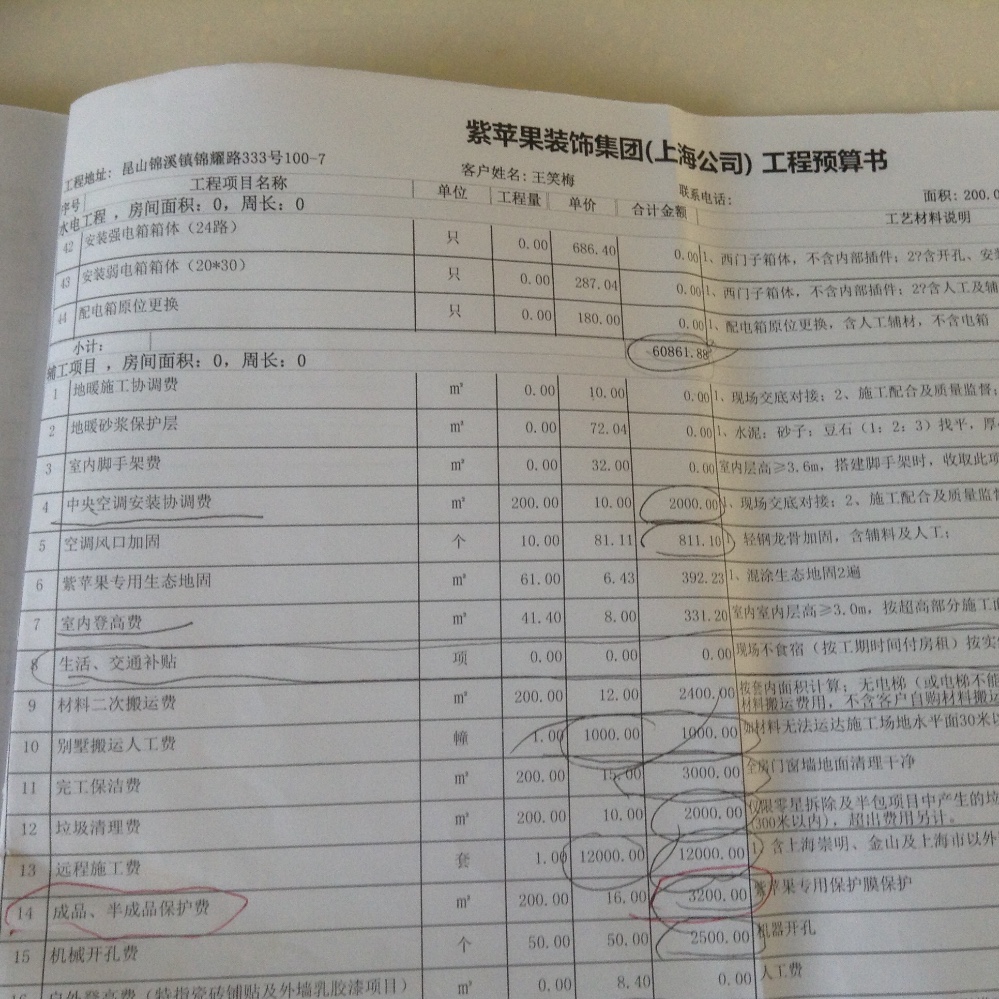 紫苹果装饰集团(上海公司) 工程预算书
工程地址: 昆山锦溪镇锦耀路333号100-7 客户姓名: 王笑梅 联系电话: 面积: 200.0
序号 工程项目名称 单位 工程量 单价 合计金额 工艺材料说明
水电工程 , 房间面积: 0, 周长: 0
42 安装强电箱箱体 (24路) 只 0.00 686.40 0.00 1、西门子箱体, 不含内部插件; 2?含开孔、安装
43 安装弱电箱箱体 (20*30) 只 0.00 287.04 0.00 1、西门子箱体, 不含内部插件; 2?含人工及辅
44 配电箱原位更换 只 0.00 180.00 0.00 1、配电箱原位更换, 含人工辅材, 不含电箱
小计: 60861.88
辅工项目 , 房间面积: 0, 周长: 0
1 地暖施工协调费 m² 0.00 10.00 0.00 1、现场交底对接; 2、施工配合及质量监督;
2 地暖砂浆保护层 m² 0.00 72.04 0.00 1、水泥: 砂子: 豆石 (1: 2: 3) 找平, 厚
3 室内脚手架费 m² 0.00 32.00 0.00 室内层高≥3.6m, 搭建脚手架时, 收取此项
4 中央空调安装协调费 m² 200.00 10.00 2000.00 1、现场交底对接; 2、施工配合及质量监督
5 空调风口加固 个 10.00 81.11 811.10 1、轻钢龙骨加固, 含辅料及人工;
6 紫苹果专用生态地固 m² 61.00 6.43 392.23 1、混涂生态地固2遍
7 室内登高费 m² 41.40 8.00 331.20 室内室内层高≥3.0m, 按超高部分施工面
8 生活、交通补贴 项 0.00 0.00 0.00 现场不食宿 (按工期时间付房租) 按实
9 材料二次搬运费 m² 200.00 12.00 2400.00 按套内面积计算; 无电梯 (或电梯不能
材料搬运费用, 不含客户自购材料搬运
10 别墅搬运人工费 幢 1.00 1000.00 1000.00 如材料无法运达施工场地水平面30米以
11 完工保洁费 m² 200.00 15.00 3000.00 全房门窗墙地面清理干净
12 垃圾清理费 m² 200.00 10.00 2000.00 仅限零星拆除及半包项目中产生的垃
(300米以内), 超出费用另计。
13 远程施工费 套 1.00 12000.00 12000.00 1、含上海崇明、金山及上海市以外
14 成品、半成品保护费 m² 200.00 16.00 3200.00 紫苹果专用保护膜保护
15 机械开孔费 个 50.00 50.00 2500.00 机器开孔
16 户外登高费 (特指瓷砖铺贴及外墙乳胶漆项目) m² 0.00 8.40 0.00 人工费